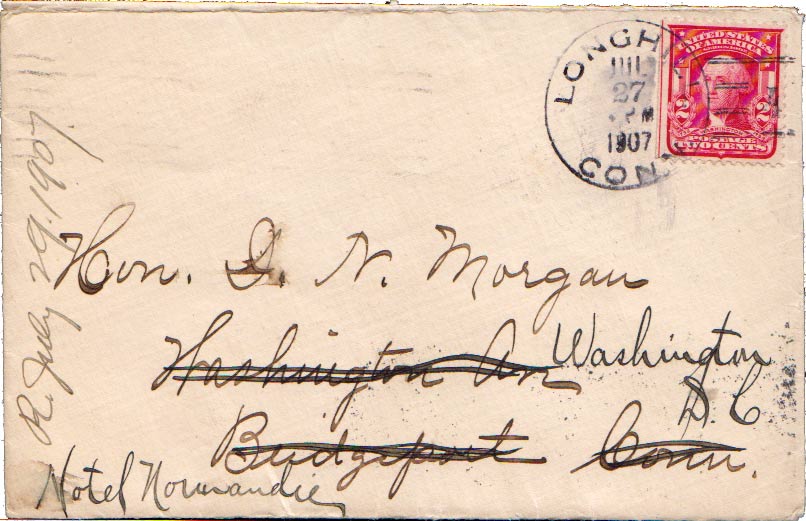 LONGHI
JUL
27
PM
1907
CONN.
UNITED STATES
OF AMERICA
2 2
WASHINGTON
POSTAGE
TWO CENTS
R. July 29. 1907.
Hon. D. N. Morgan
Washington Av
Washington
D. C
Bridgeport Conn.
Hotel Normandie